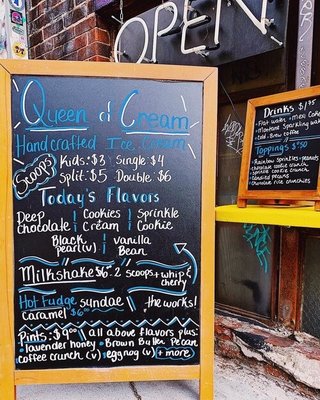 OPEN
Queen of Cream
Handcrafted Ice Cream
Scoops Kids: $3 Single: $4
Split: $5 Double: $6
Today's Flavors
Deep Cookies Sprinkle
chocolate Cream Cookie
Black vanilla
pearl(v) Bean
Milkshake $6- 2 scoops + whip &
cherry
Hot Fudge sundae the works!
caramel $6
Pints: $9 all above flavors plus:
• lavender honey • Brown Butter Pecan
coffee crunch (v) eggnog (v) + more
Drinks $1
• Flat water
• Sparkling wat
• Cold-Brew coffee
Toppings $
• Rainbow Sprinkles • peanuts
• chocolate cookie crunch
• Sprinkle cookie crunch
• candied pecans
• chocolate rice crunchies